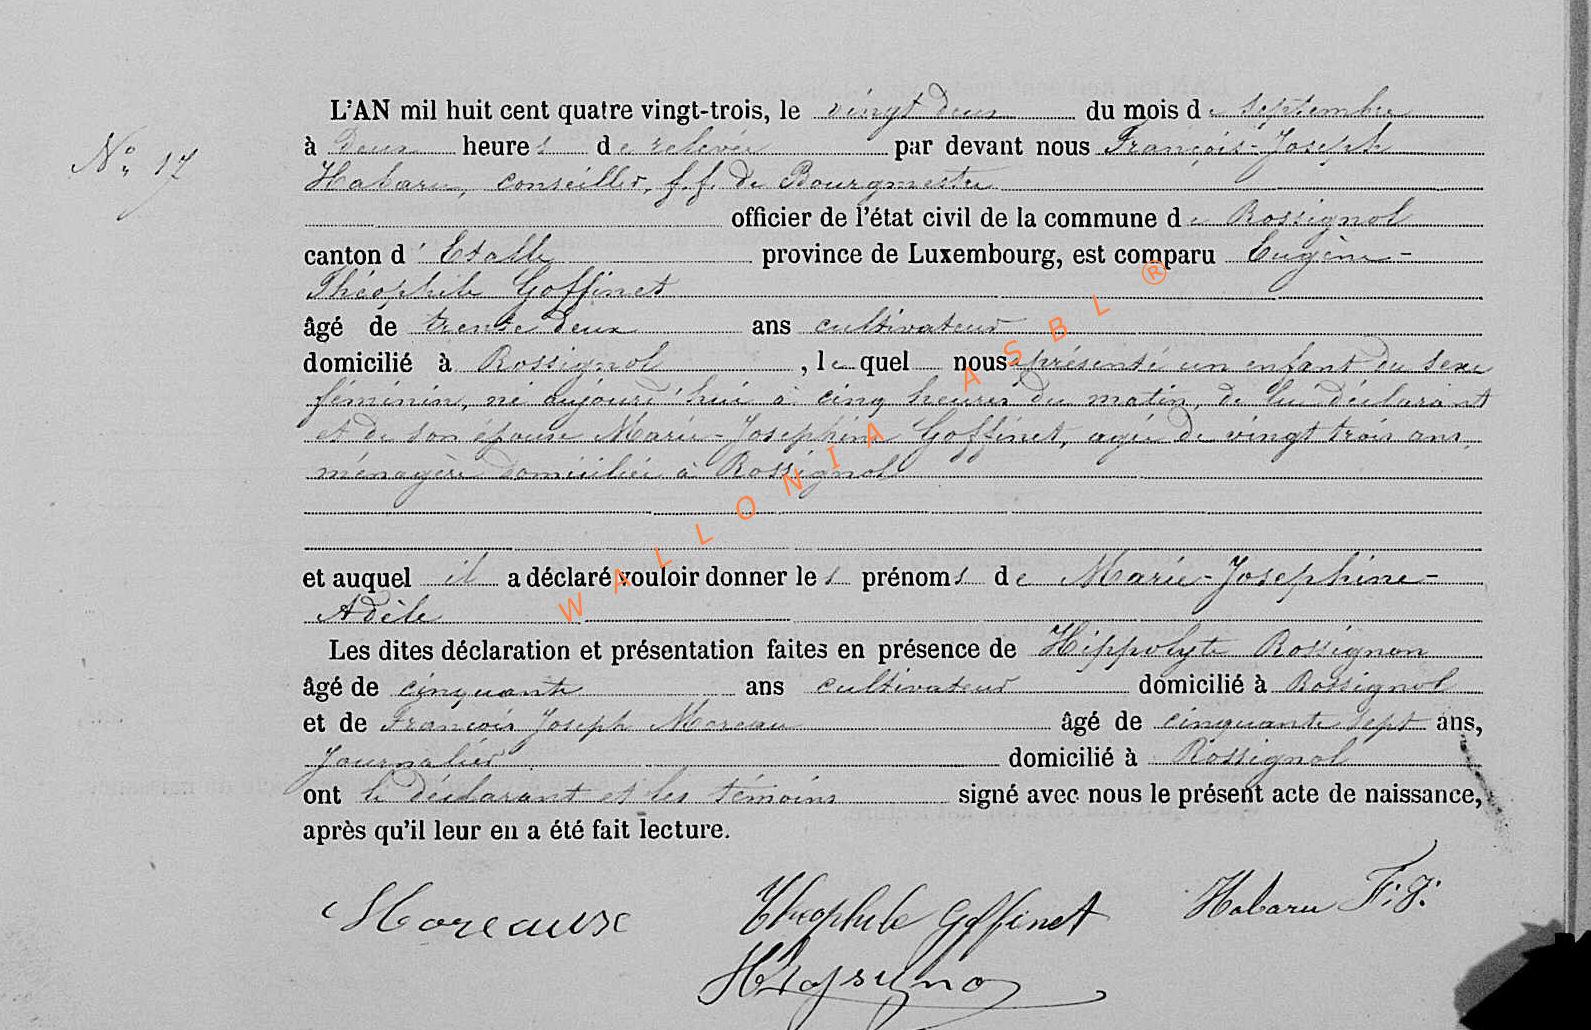 L'AN mil huit cent quatre vingt-trois, le vingt deux du mois de septembre
N° 17
à Deux heures de relevée par devant nous François-Joseph
Habaru, conseiller, f.f. de Bourgmestre
officier de l'état civil de la commune de Rossignol
canton d' Etalle province de Luxembourg, est comparu Eugène-
Théophile Goffinet
âgé de trente deux ans cultivateur
domicilié à Rossignol, lequel nous a présenté un enfant du sexe
féminin, né aujourd'hui à cinq heures du matin, de lui déclarant
et de son épouse Marie-Joséphine Goffinet, agée de vingt trois ans,
ménagère domiciliée à Rossignol
et auquel il a déclaré vouloir donner les prénoms de Marie-Joséphine-
Adèle
Les dites déclaration et présentation faites en présence de Hippolyte Rossignon
âgé de cinquante ans cultivateur domicilié à Rossignol
et de François Joseph Moreau âgé de cinquante sept ans,
Journalier domicilié à Rossignol
ont le déclarant et les témoins signé avec nous le présent acte de naissance,
après qu'il leur en a été fait lecture.
Moreaux Théophile Goffinet Habaru F.J.
WALLONIA ASBL ®